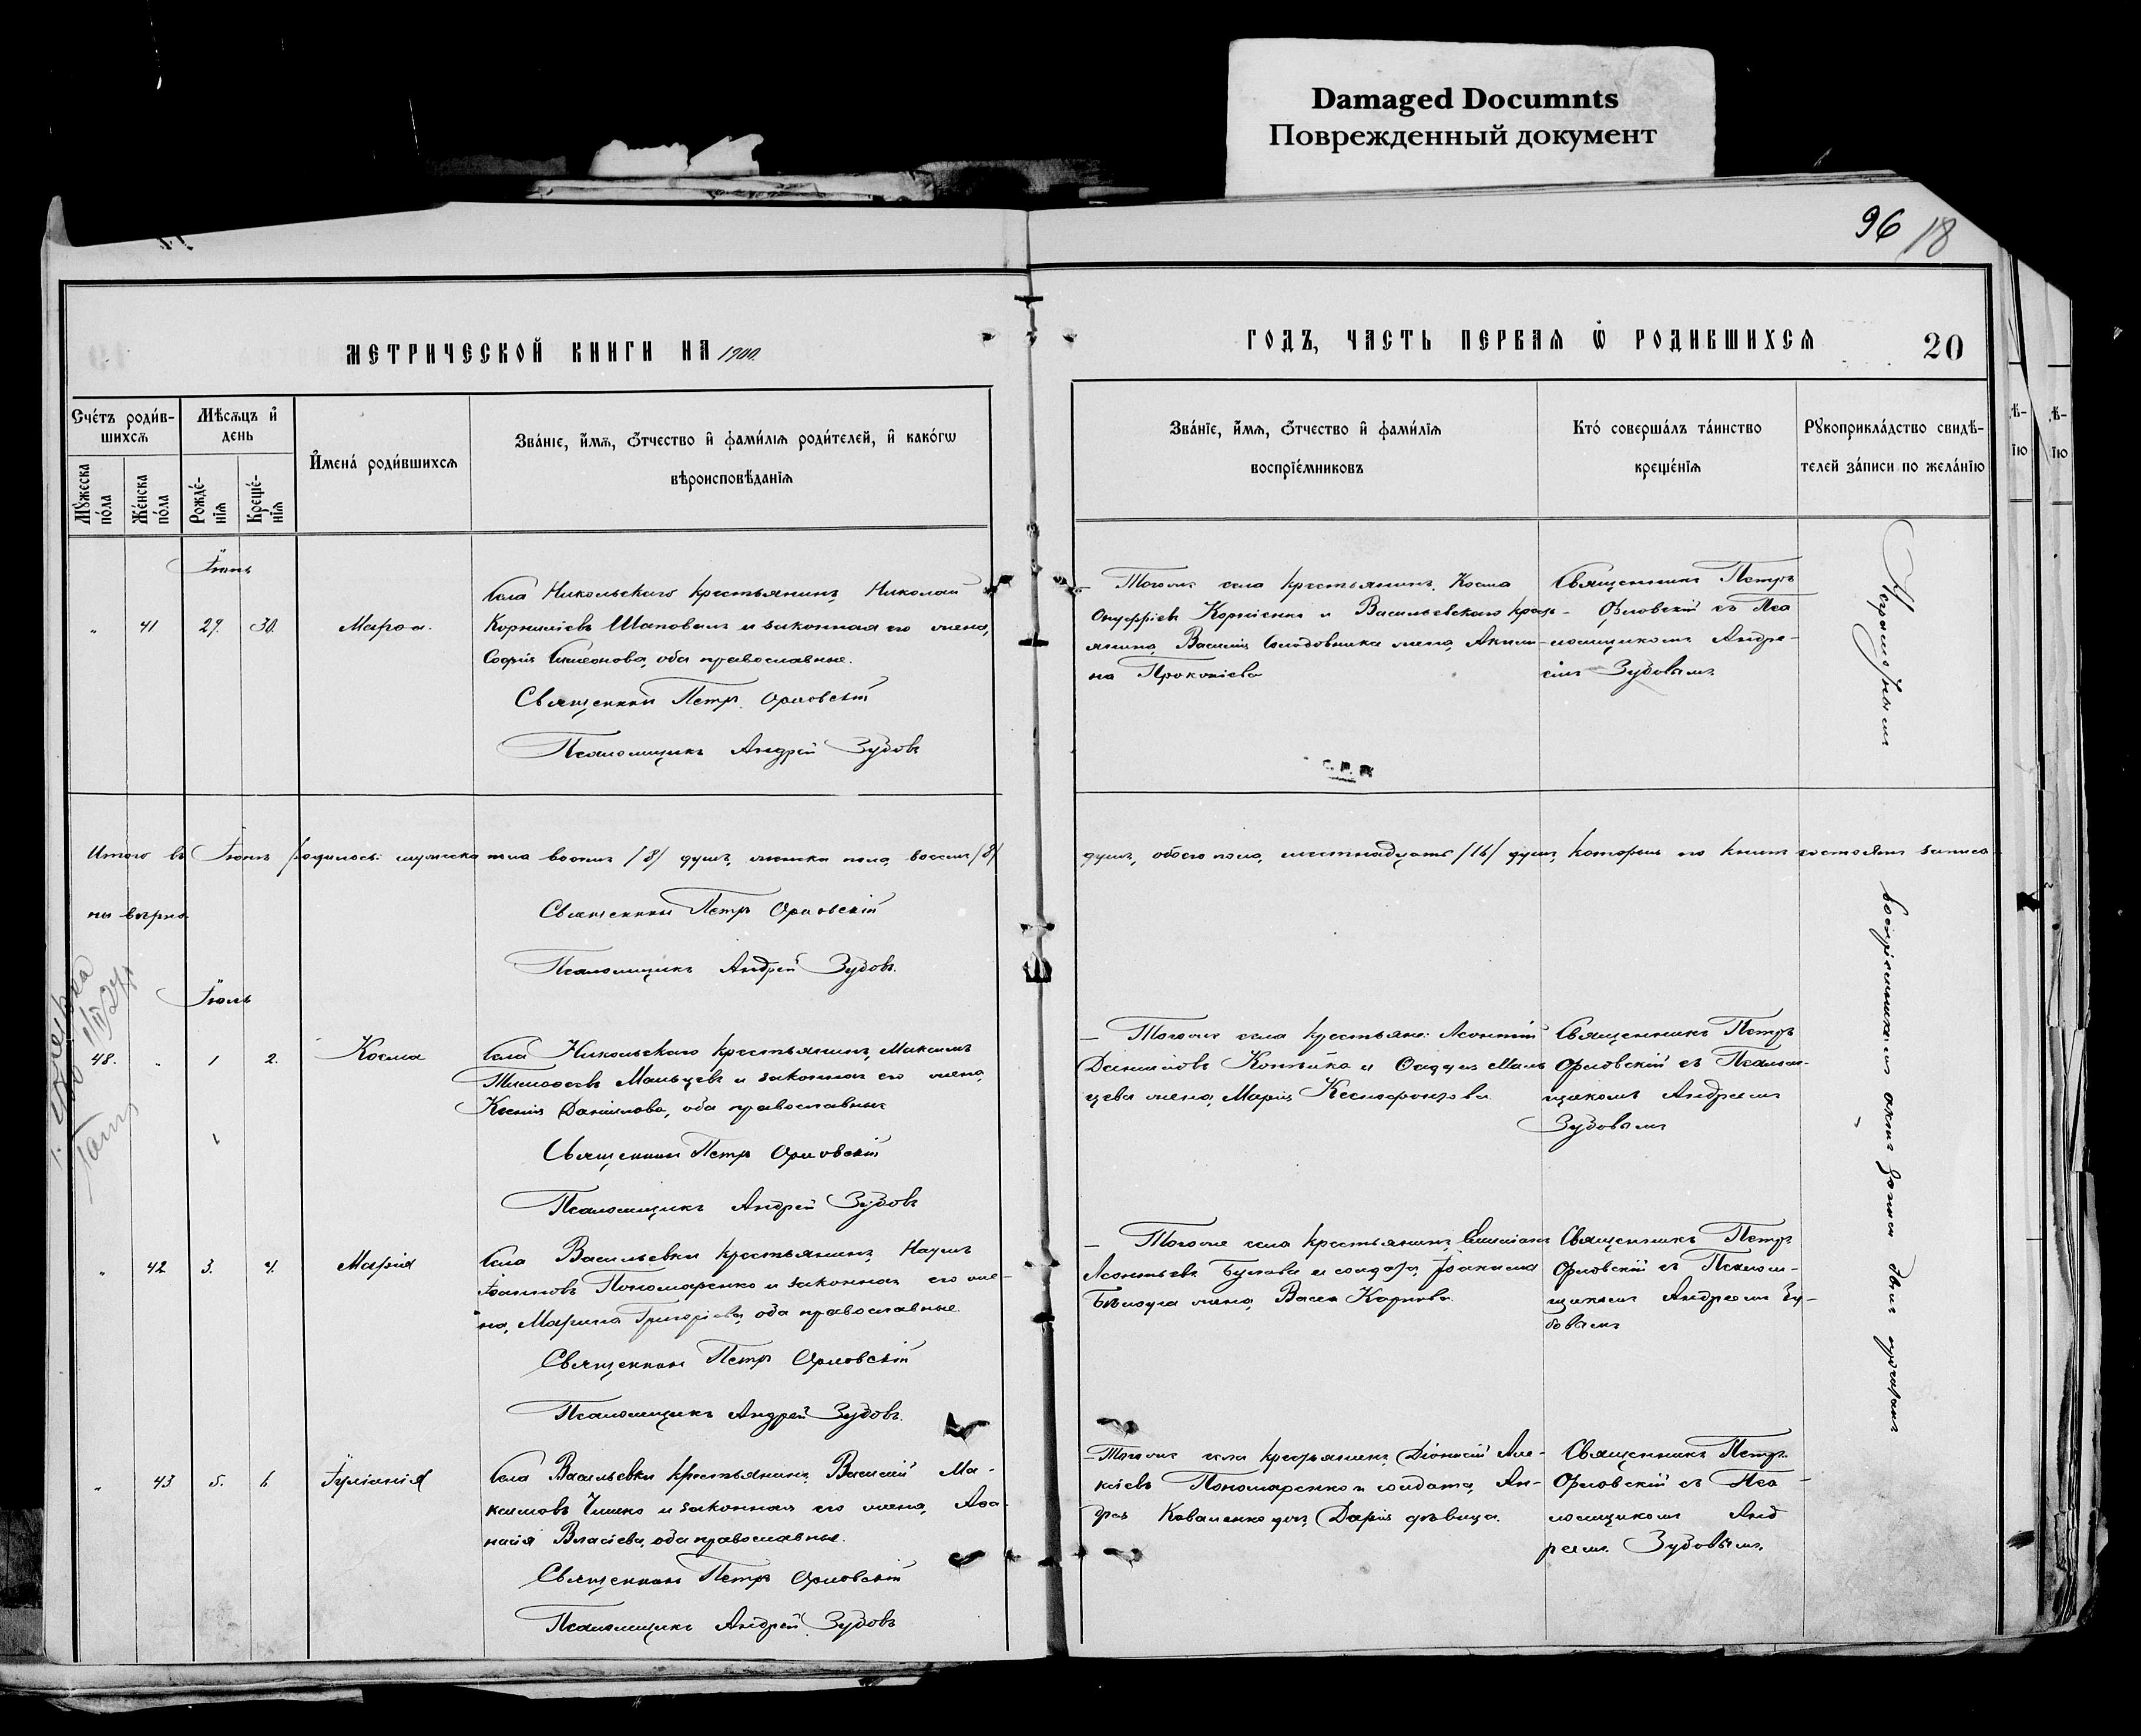 Damaged Documnts
Поврежденный документ
96 18
МЕТРИЧЕСКОЙ КНИГИ НА 1900
ГОДЪ, ЧАСТЬ ПЕРВАЯ Ѿ РОДИВШИХСЯ
20
Счетъ родив-
шихся
Мѣсяцъ и
день
Мужеска
пола
Женска
пола
Рожде-
нія
Креще-
нія
Имена родившихся
Званіе, имя, отчество и фамилія родителей, и какогѡ
вѣроисповѣданія
Званіе, имя, отчество и фамилія
воспріемниковъ
Кто совершалъ таинство
крещенія
Рукоприкладство свидѣ-
телей записи по желанію
Іюнь
„ 41 29. 30. Марѳа.
Села Никольскаго крестьянинъ, Николай
Корниліевъ Шаповалъ и законная его жена,
Софія Симеонова, оба православные.
Священникъ Петръ Орловскій
Псаломщикъ Андрей Зубовъ
Тогоже села крестьянинъ, Косма
Онуфріевъ Корніенко и Васильевскаго кресть-
янина, Василія жена, Акили-
на Прокопіева
Священникъ Петръ
Орловскій съ Пса
ломщикомъ Андре-
емъ Зубовымъ
Неграмотнымъ
Итого въ Іюнѣ родилось: мужеска пола восемь /8/ душъ, женска пола, восемь /8/
душъ, обоего пола, шестнадцать /16/ душъ, которые по книгѣ состоятъ записа
ны вѣрно.
Священникъ Петръ Орловскій
Псаломщикъ Андрей Зубовъ.
Іюль
48. „ 1 2. Косма
Села Никольскаго крестьянинъ, Максимъ
Тимоѳеевъ Мальцевъ и законная его жена,
Ксенія Даніилова, оба православные
Священникъ Петръ Орловскій
Псаломщикъ Андрей Зубовъ
Тогоже села крестьяне: Леонтій
Даниловъ Копѣйка и Ѳаддея Маль
цева жена, Марія Ксенофонтова
Священникъ Петръ
Орловскій съ Псалом-
щикомъ Андреемъ
Зубовымъ
воспріемникамъ актъ записи
„ 42 3. 4. Марія
Села Васильевки крестьянинъ, Наумъ
Іоанновъ Пономаренко и законная его же-
на, Марина Григоріева, оба православные.
Священникъ Петръ Орловскій
Псаломщикъ Андрей Зубовъ.
Тогоже села крестьянинъ,
Леонтьевъ и солдата, Іоакима
Бѣлоуса жена, Васса Карпова.
Священникъ Петръ
Орловскій съ Псалом-
щикомъ Андреемъ Зу-
бовымъ
„ 43 5. 6 Іуліанія
Села Васильевки крестьянинъ, Василій Ма-
ксимовъ Чишко и законная его жена, Аѳа-
насія Власіева, оба православные.
Священникъ Петръ Орловскій
Псаломщикъ Андрей Зубовъ
Тогоже села крестьянинъ, Діонисій Але-
ксіевъ Пономаренко и солдата, Ан-
дрея Коваленко дочь, Дарія дѣвица.
Священникъ Петръ
Орловскій съ Пса-
ломщикомъ Анд
реемъ Зубовымъ.